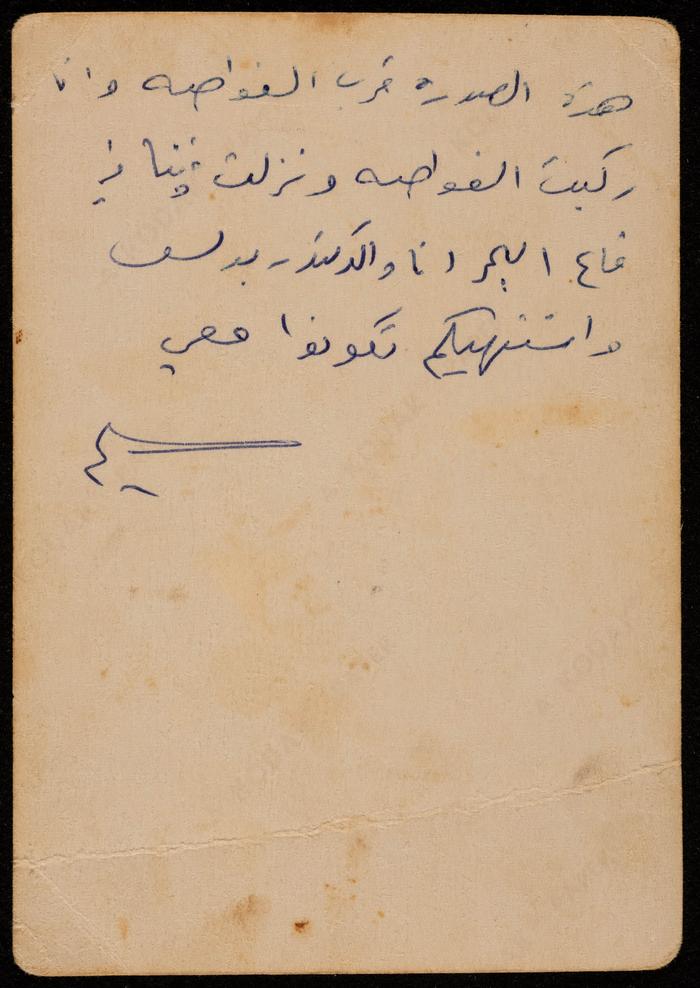 هذه الصورة قرب الغواصه وانا
ركبت الغواصه ونزلت فينا في
قاع البحر انا والكندر بولس
واشتهيكم تكونوا معي
سليم